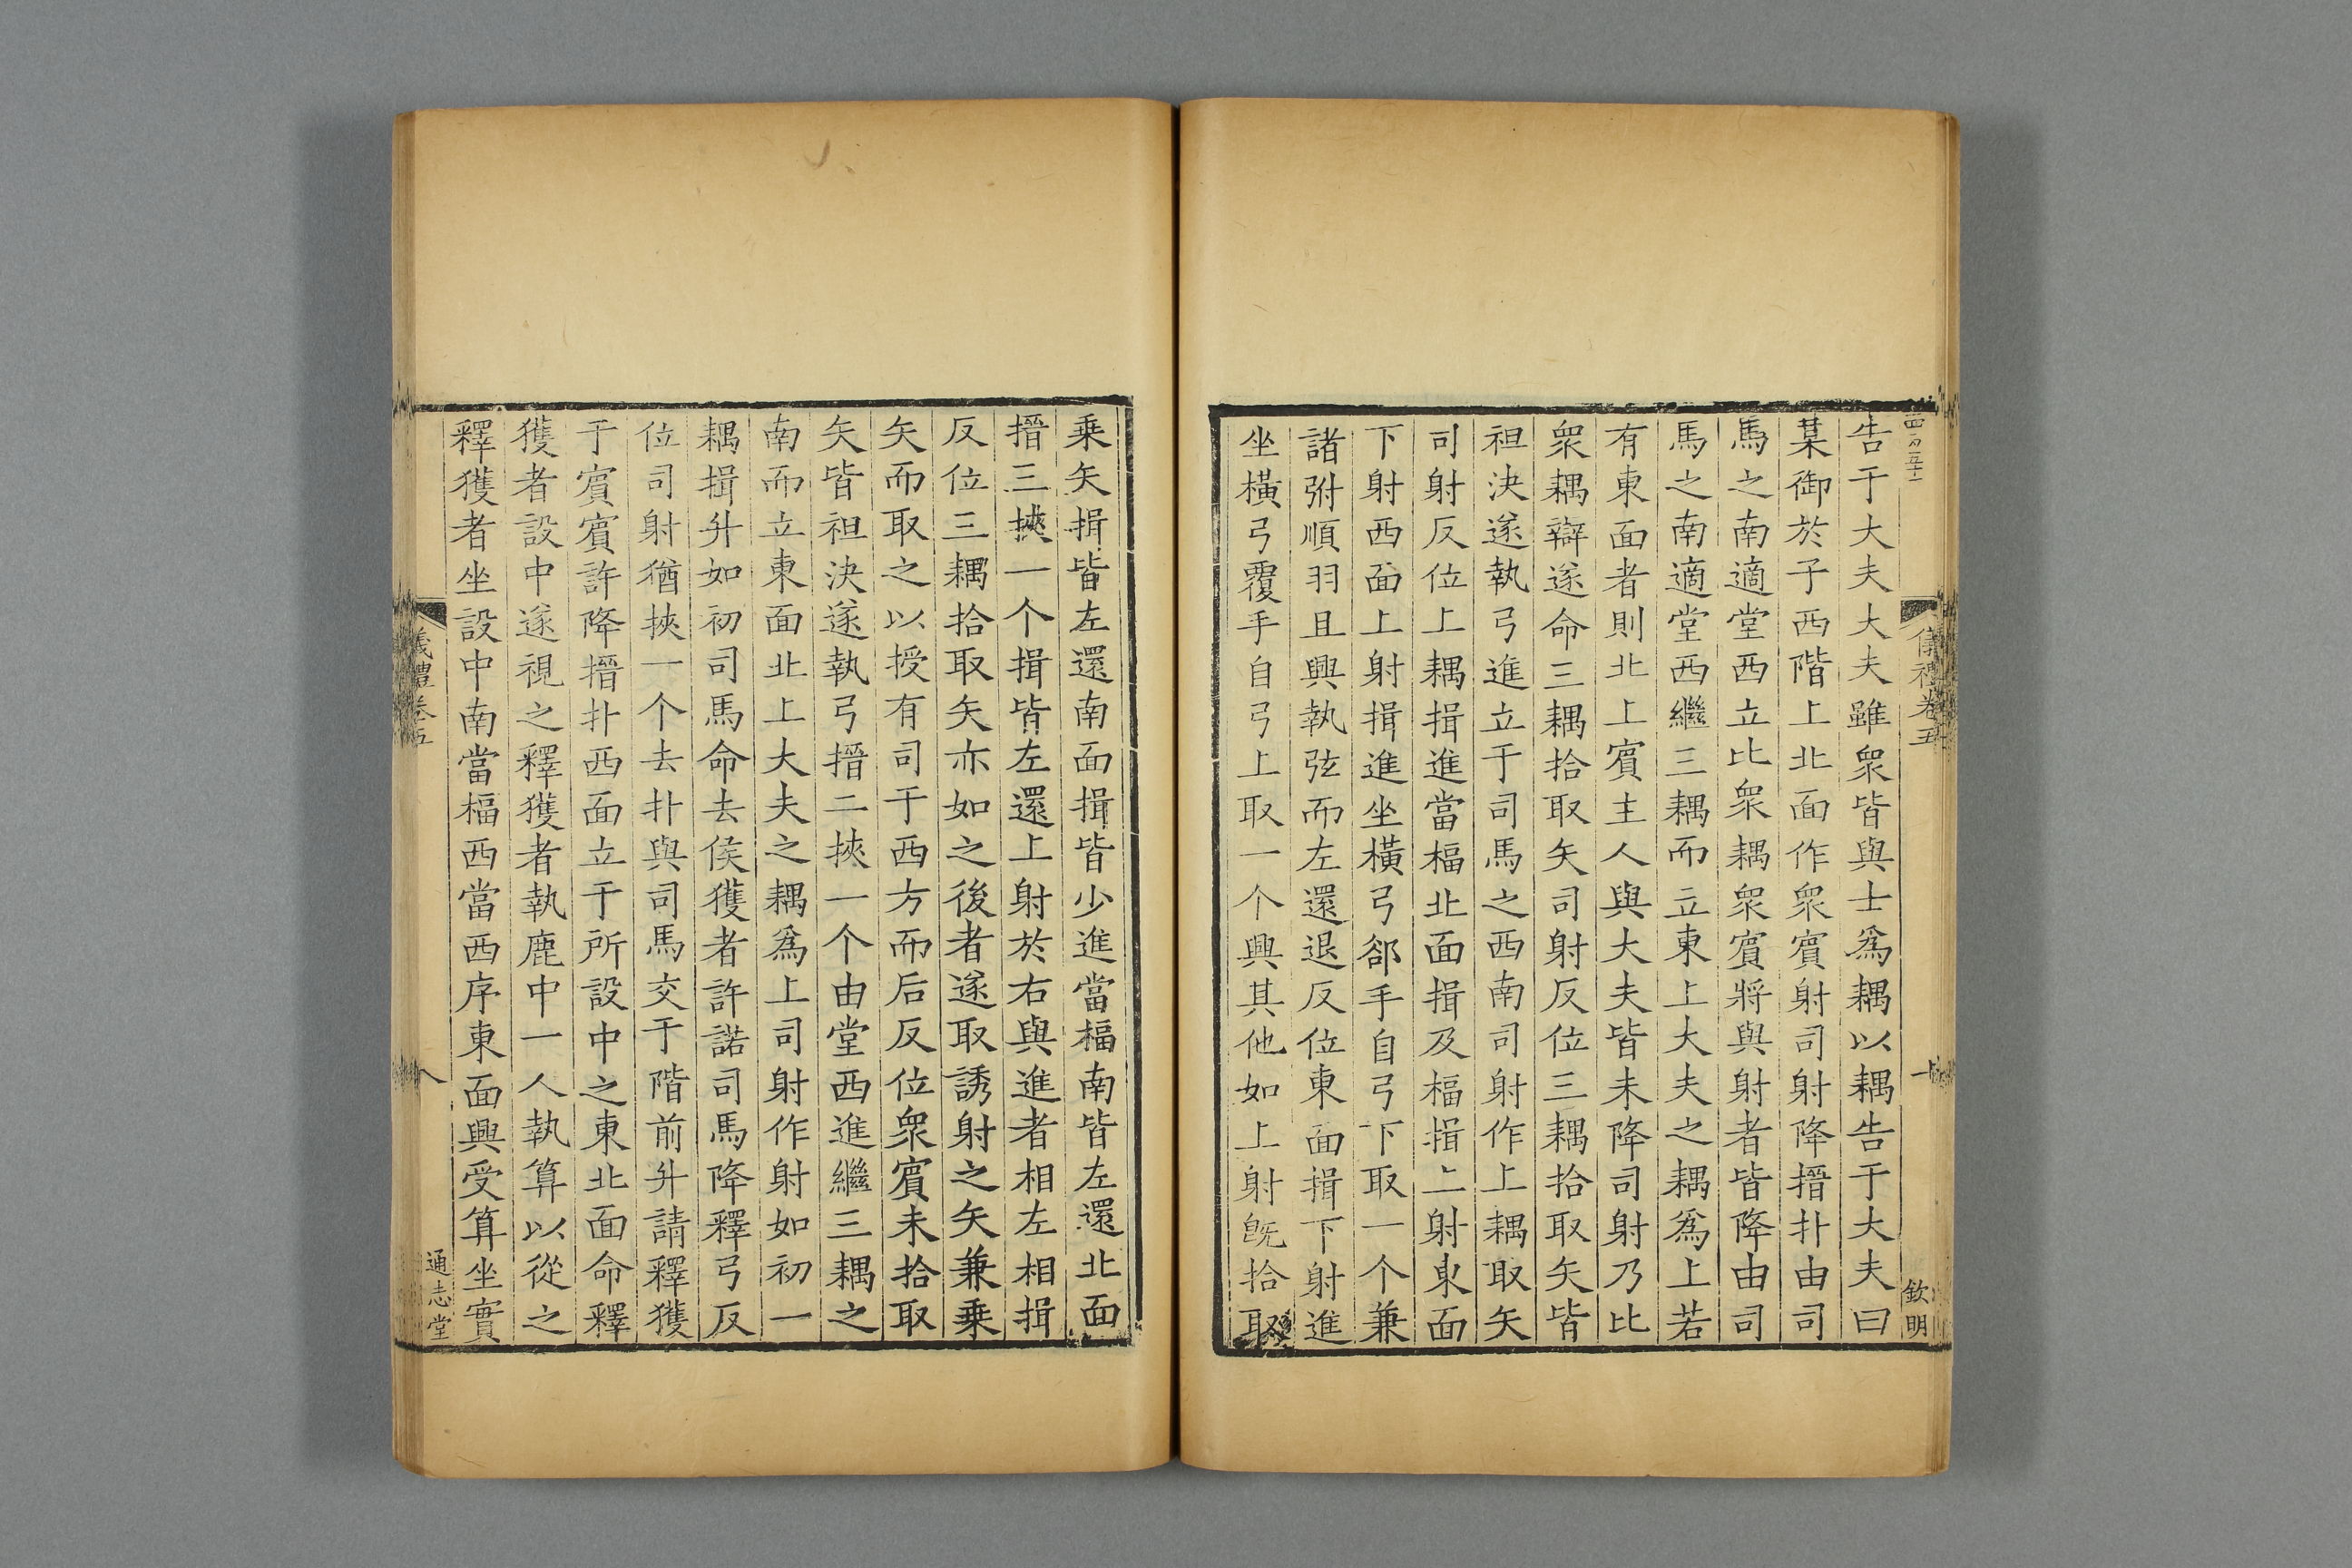 儀禮卷五
欽明
告于大夫大夫雖衆皆與士爲耦以耦告于大夫曰
某御於子西階上北面作衆賓射司射降搢扑由司
馬之南適堂西立比衆耦衆賓將與射者皆降由司
馬之南適堂西繼三耦而立東上大夫之耦爲上若
有東面者則北上賓主人與大夫皆未降司射乃比
衆耦辯遂命三耦拾取矢司射反位三耦拾取矢皆
袒決遂執弓進立于司馬之西南司射作上耦取矢
司射反位上耦揖進當楅北面揖及楅揖上射東面
下射西面上射揖進坐橫弓郤手自弓下取一个兼
諸弣順羽且興執弦而左還退反位東面揖下射進
坐橫弓覆手自弓上取一个興其他如上射旣拾取
乗矢揖皆左還南面揖皆少進當楅南皆左還北面
搢三挾一个揖皆左還上射於右與進者相左相揖
反位三耦拾取矢亦如之後者遂取誘射之矢兼乗
矢而取之以授有司于西方而后反位衆賓未拾取
矢皆袒決遂執弓搢三挾一个由堂西進繼三耦之
南而立東面北上大夫之耦爲上司射作射如初一
耦揖升如初司馬命去侯獲者許諾司馬降釋弓反
位司射猶挾一个去扑與司馬交于階前升請釋獲
于賓賓許降搢扑西面立于所設中之東北面命釋
獲者設中遂視之釋獲者執鹿中一人執算以從之
釋獲者坐設中南當楅西當西序東面興受算坐實
儀禮卷五
八
通志堂